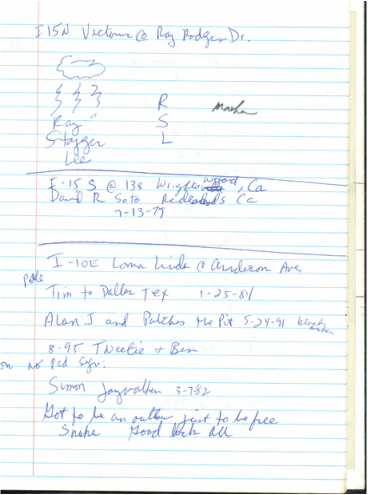 I 15N Victorville @ Roy Rodgers Dr.
R
"Ray" S
Stagger L
Lee
I-15 S @ 138 Wrightwood, Ca
David R Soto Redlands Ca
7-13-79
I-10E Loma Linda @ Anderson Ave
pole
Tim to Dallas Tex 1-25-84
Alan J and Patches the Pit 5-24-91
8-95 Tweetie + Ben
on no Ped Sign:
Simon Jaywalker 3-7-82
Got to be an outlaw just to be free
Snake Good luck All